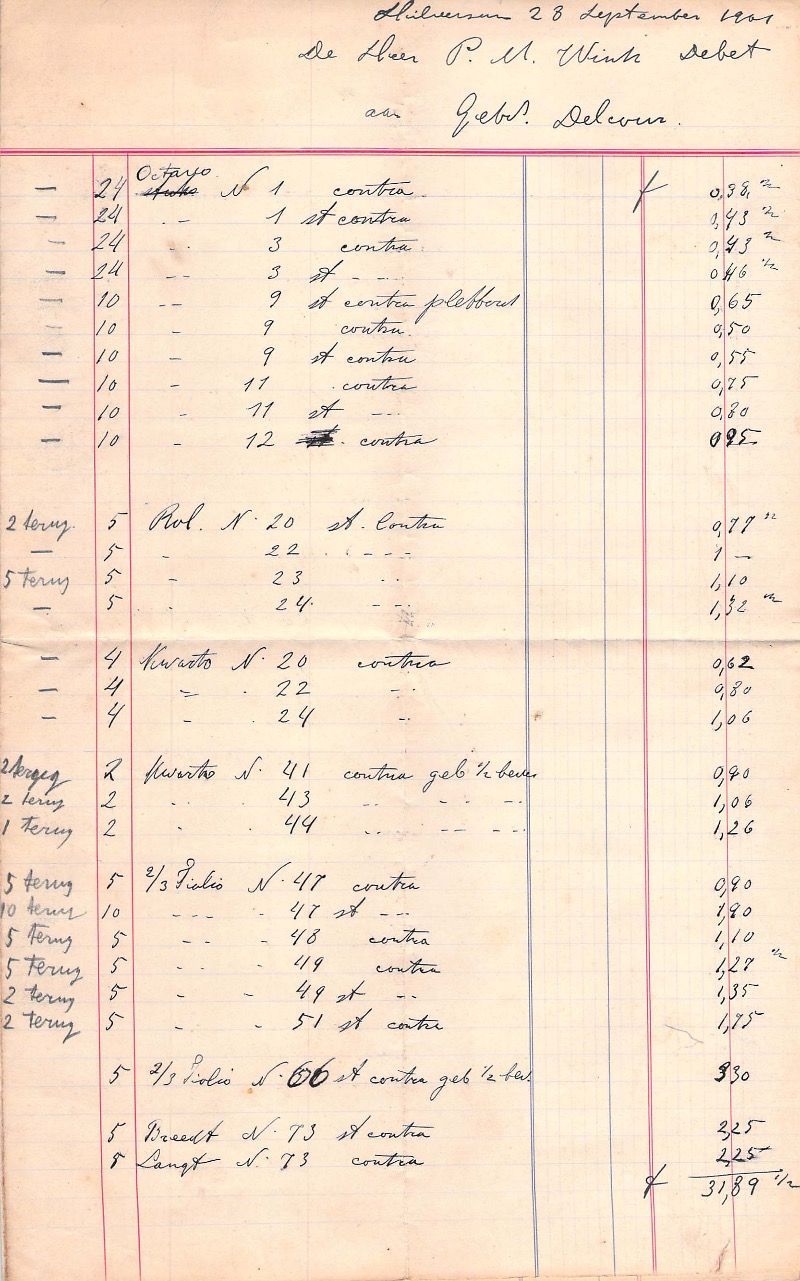 Hilversum 28 September 1901
De Heer P. M. Wink Debet
aan Gebrs. Delcour.
Octavo
— 24 N 1 contra f 0,38 1/2
— 24 - - 1 st contra 0,43 1/2
— 24 - - 3 contra 0,43 1/2
— 24 - - 3 st - - - 0,46 1/2
— 10 - - 9 st contra 0,65
— 10 - 9 contra 0,50
— 10 - 9 st contra 0,55
— 10 - 11 contra 0,75
— 10 - 11 st - - - 0,80
— 10 - 12 contra 0,95
2 terug 5 Rol. N. 20 st. Contra 0,77 1/2
— 5 - 22 - - - - 1 —
5 terug 5 - 23 - - 1,10
— 5 - 24. - - - 1,32 1/2
— 4 Kwarto N. 20 contra 0,62
— 4 - 22 - - 0,80
— 4 - 24 - - 1,06
2 terug 2 Kwarto N. 41 contra geb 1/2 0,90
2 terug 2 - - 43 - - - - - 1,06
1 terug 2 - 44 - - - - - - 1,26
5 terug 5 2/3 Fiolio N. 47 contra 0,90
10 terug 10 - - - - 47 st - - - 1,90
5 terug 5 - - - 48 contra 1,10
5 terug 5 - - - 49 contra 1,27 1/2
2 terug 5 - - 49 st - - 1,35
2 terug 5 - - 51 st contra 1,75
5 2/3 Fiolio N. 66 st contra geb 1/2 3 30
5 Breedt N. 73 st contra 2,25
5 Langt N. 73 contra 2,25
f 31,89 1/2